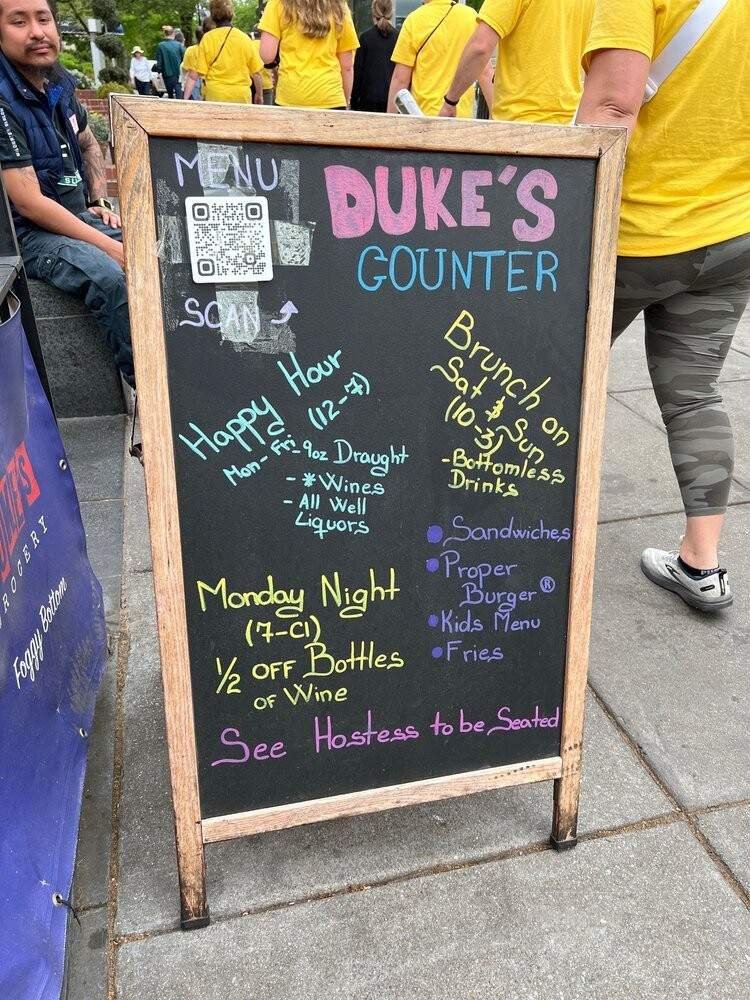 MENU
SCAN
DUKE'S
COUNTER
Happy Hour
(12-7)
Mon-Fri
-9oz Draught
-*Wines
-All Well
Liquors
Brunch on
Sat & Sun
(10-3)
-Bottomless
Drinks
Sandwiches
Proper
Burger®
Kids Menu
Fries
Monday Night
(7-Cl)
1/2 OFF Bottles
of Wine
See Hostess to be Seated
Foggy Bottom